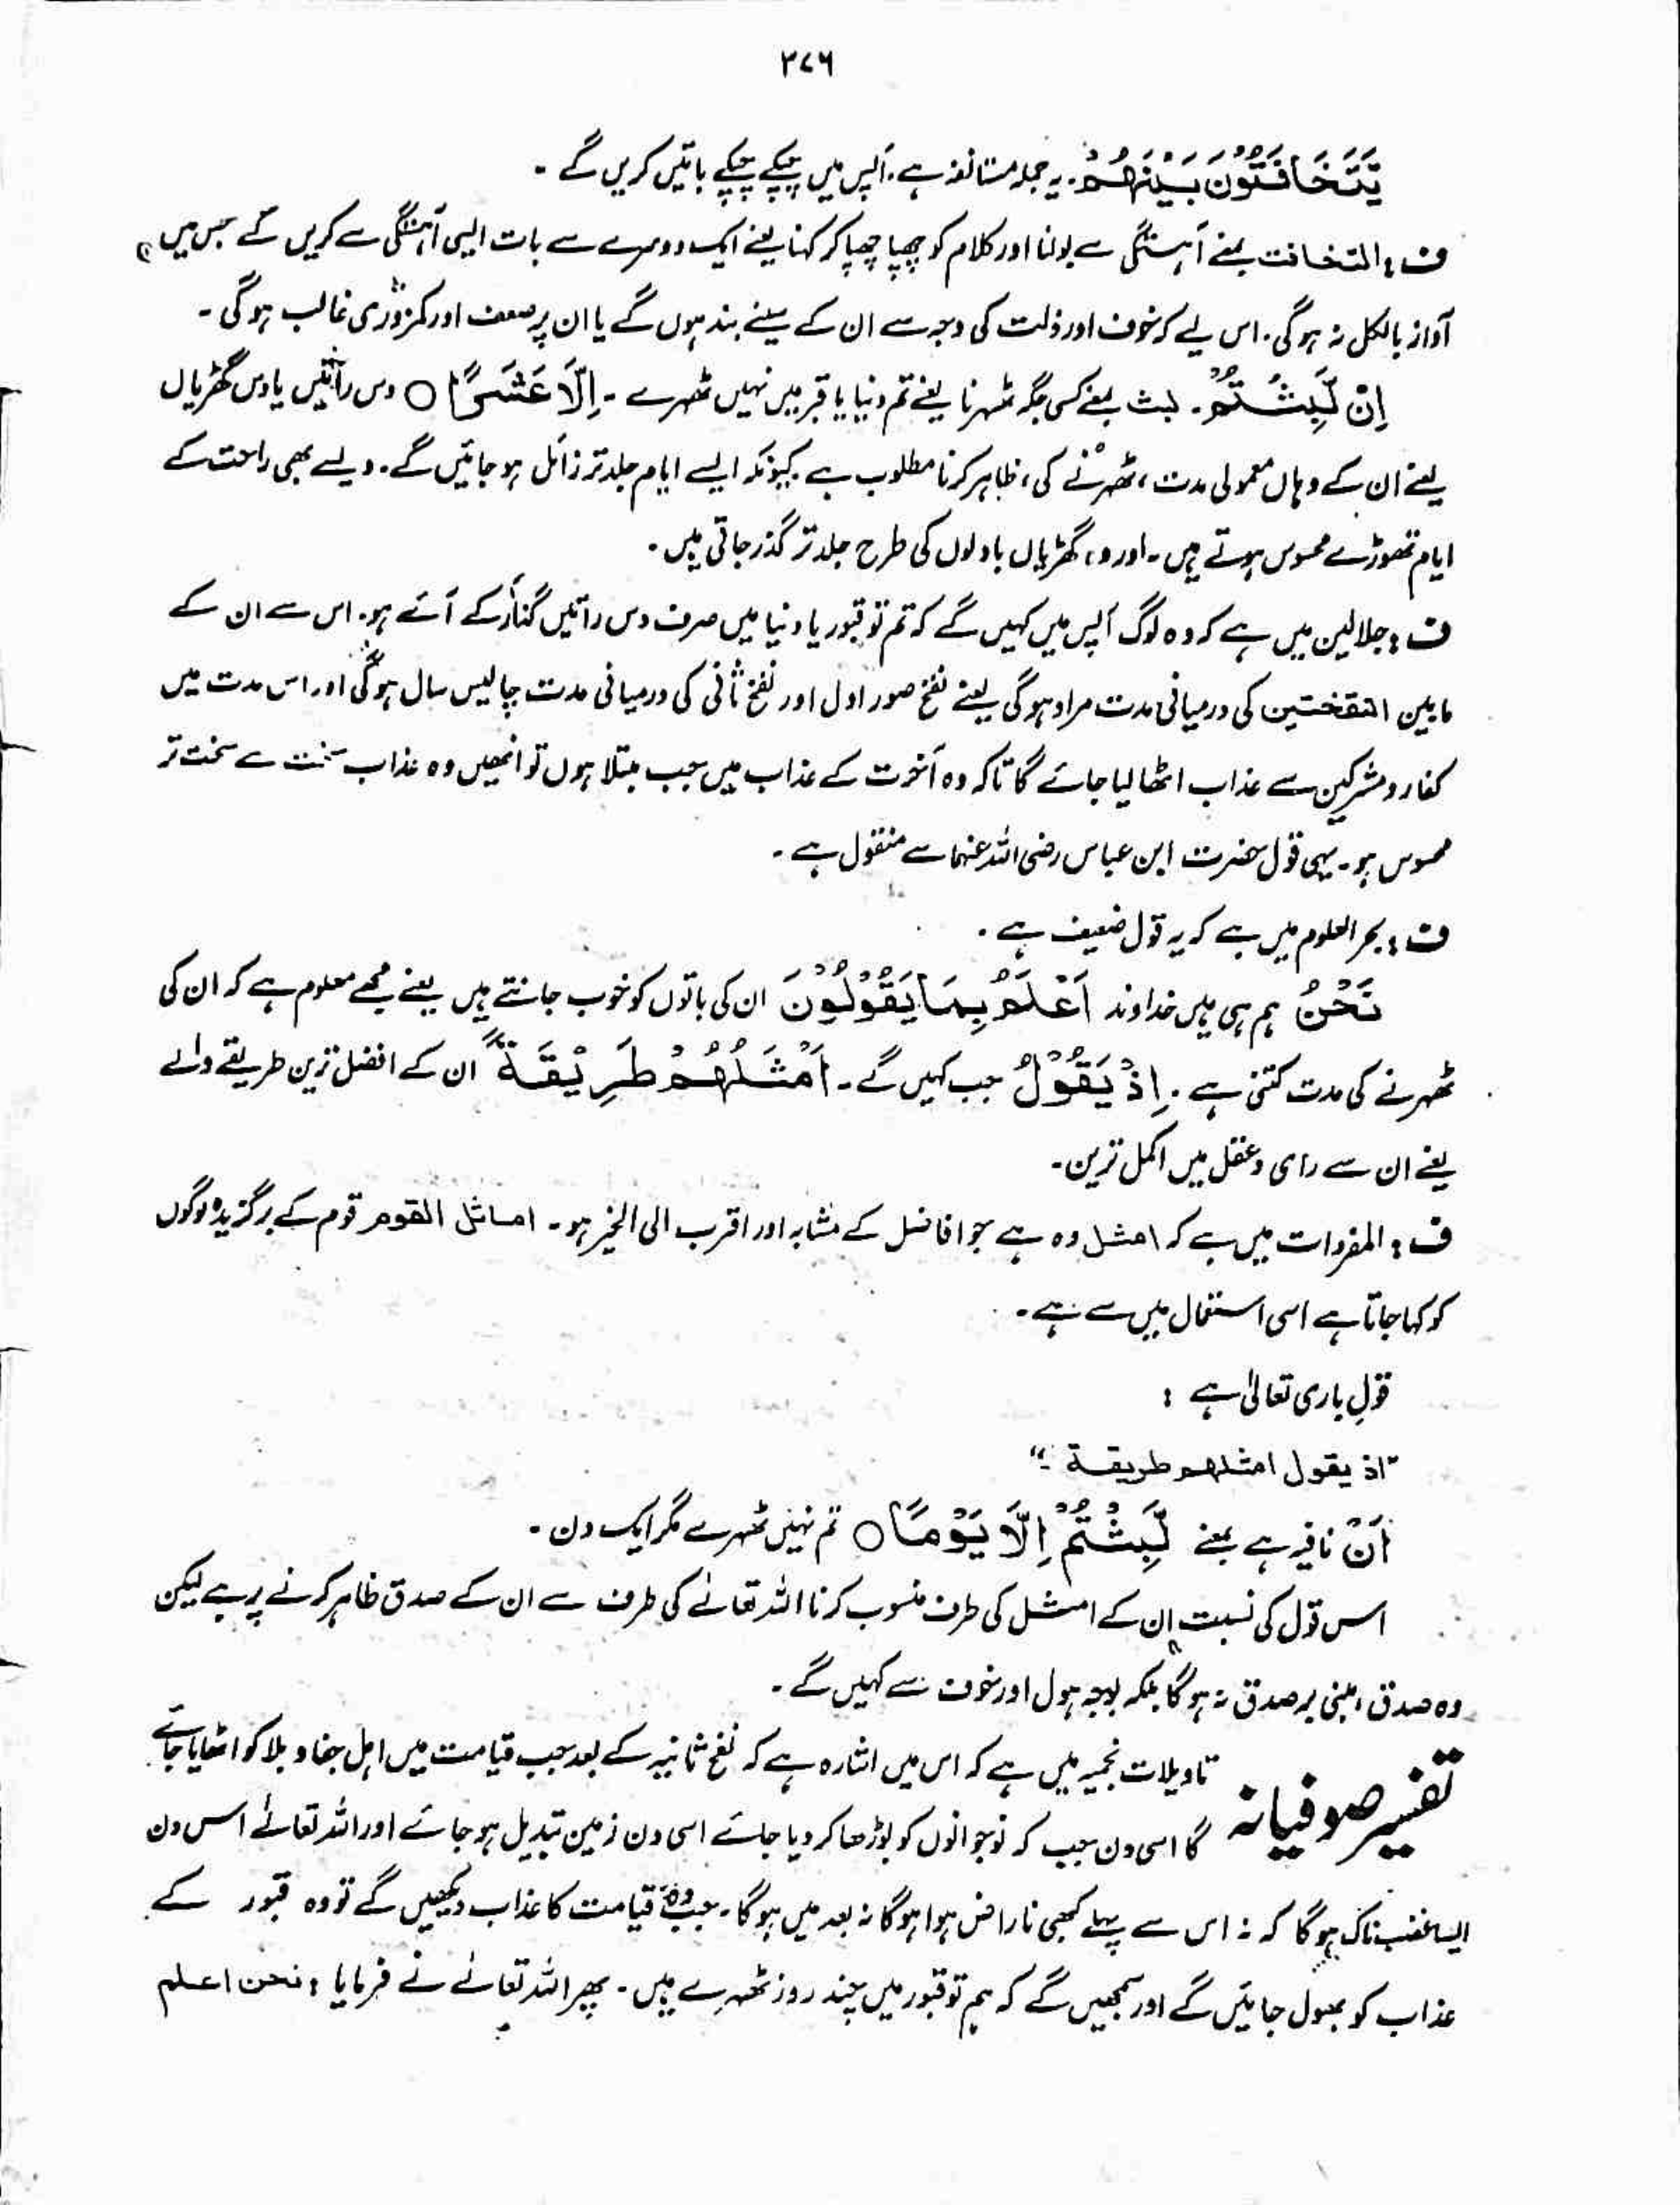 ۳۷۶
يَتَخَافَتُوْنَ بَيْنَهُمْ. یہ جملہ مستانفہ ہے۔ آپس میں چپکے چپکے باتیں کریں گے ۔
ف : التخافت بمعنے آہستگی سے بولنا اور کلام کو چھپا چھپا کر کہنا یعنے ایک دوسرے سے بات ایسی آہستگی سے کریں گے جس میں
آواز بالکل نہ ہوگی۔ اس لیے کہ خوف اور ذلت کی وجہ سے ان کے سینے بند ہوں گے یا ان پر ضعف اور کمزوری غالب ہوگی ۔
اِنْ لَّبِثْتُمْ ۔ لبث بمعنے کسی جگہ ٹھہرنا یعنے تم دنیا یا قبر میں نہیں ٹھہرے ۔ اِلَّا عَشْرًا ○ دس راتیں یا دس گھڑیاں
یعنے ان کے وہاں معمولی مدت ، ٹھہرنے کی ، ظاہر کرنا مطلوب ہے کیونکہ ایسے ایام جلد تر زائل ہو جائیں گے۔ ویسے بھی راحت کے
ایام تھوڑے محسوس ہوتے ہیں ۔ اور وہ گھڑیاں بادلوں کی طرح جلد تر گذر جاتی ہیں ۔
ف : جلالین میں ہے کہ وہ لوگ آپس میں کہیں گے کہ تم تو قبور یا دنیا میں صرف دس راتیں گذار کے آئے ہو۔ اس سے ان کے
مابین النفختین کی درمیانی مدت مراد ہوگی یعنے نفخ صور اول اور نفخ ثانی کی درمیانی مدت چالیس سال ہوگی اور اس مدت میں
کفار و مشرکین سے عذاب اٹھا لیا جائے گا تاکہ وہ آخرت کے عذاب میں جب مبتلا ہوں تو انھیں وہ عذاب سخت سے سخت تر
محسوس ہو ۔ یہی قول حضرت ابن عباس رضی اللہ عنہما سے منقول ہے ۔
ف : بحر العلوم میں ہے کہ یہ قول ضعیف ہے ۔
نَحْنُ ہم ہی ہیں خداوند اَعْلَمُ بِمَا يَقُوْلُوْنَ ان کی باتوں کو خوب جانتے ہیں یعنے مجھے معلوم ہے کہ ان کی
ٹھہرنے کی مدت کتنی ہے ۔ اِذْ يَقُوْلُ جب کہیں گے ۔ اَمْثَلُهُمْ طَرِيْقَةً ان کے افضل ترین طریقے والے
یعنے ان سے رای و عقل میں اکمل ترین۔
ف : المفردات میں ہے کہ امثل وہ ہے جو افاضل کے مشابہ اور اقرب الی الخیر ہو ۔ اماثل القوم قوم کے برگزیدہ لوگوں
کو کہا جاتا ہے اسی استعمال میں سے ہے ۔
قولِ باری تعالیٰ ہے :
"اذ يقول امثلهم طريقة ۔"
اَنْ نافیہ ہے بمعنے لَّبِثْتُمْ اِلَّا يَوْمًا ○ تم نہیں ٹھہرے مگر ایک دن ۔
اس قول کی نسبت ان کے امثل کی طرف منسوب کرنا اللہ تعالےٰ کی طرف سے ان کے صدق ظاہر کرنے پر ہے لیکن
وہ صدق ، مبنی بر صدق نہ ہوگا بلکہ بوجہ ہول اور خوف سے کہیں گے ۔
تفسیر صوفیانہ تاویلات نجمیہ میں ہے کہ اس میں اشارہ ہے کہ نفخ ثانیہ کے بعد جب قیامت میں اہل جفا و بلا کو اٹھایا جائے
گا اسی دن جب کہ نوجوانوں کو بوڑھا کر دیا جائے اسی دن زمین تبدیل ہو جائے اور اللہ تعالےٰ اس دن
ایسا غضبناک ہوگا کہ نہ اس سے پہلے کبھی ناراض ہوا ہوگا نہ بعد میں ہوگا ۔ جب وہ قیامت کا عذاب دیکھیں گے تو وہ قبور کے
عذاب کو بھول جائیں گے اور سمجھیں گے کہ ہم تو قبور میں چند روز ٹھہرے ہیں ۔ پھر اللہ تعالےٰ نے فرمایا : نحن اعلم